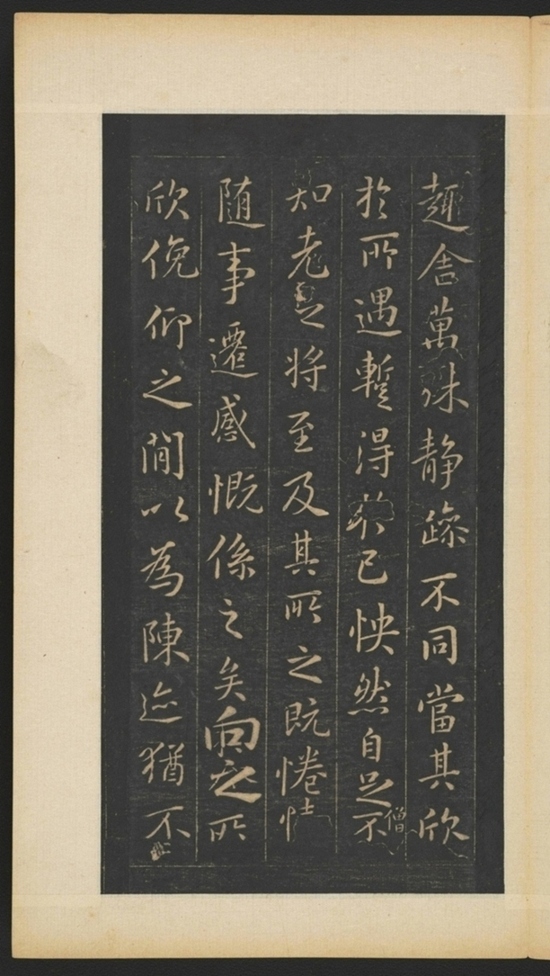 趣舍萬殊静躁不同當其欣
於所遇蹔得於己怏然自足不
僧
知老之將至及其所之既惓情
随事遷感慨係之矣向之所
欣俛仰之閒以為陳迹猶不